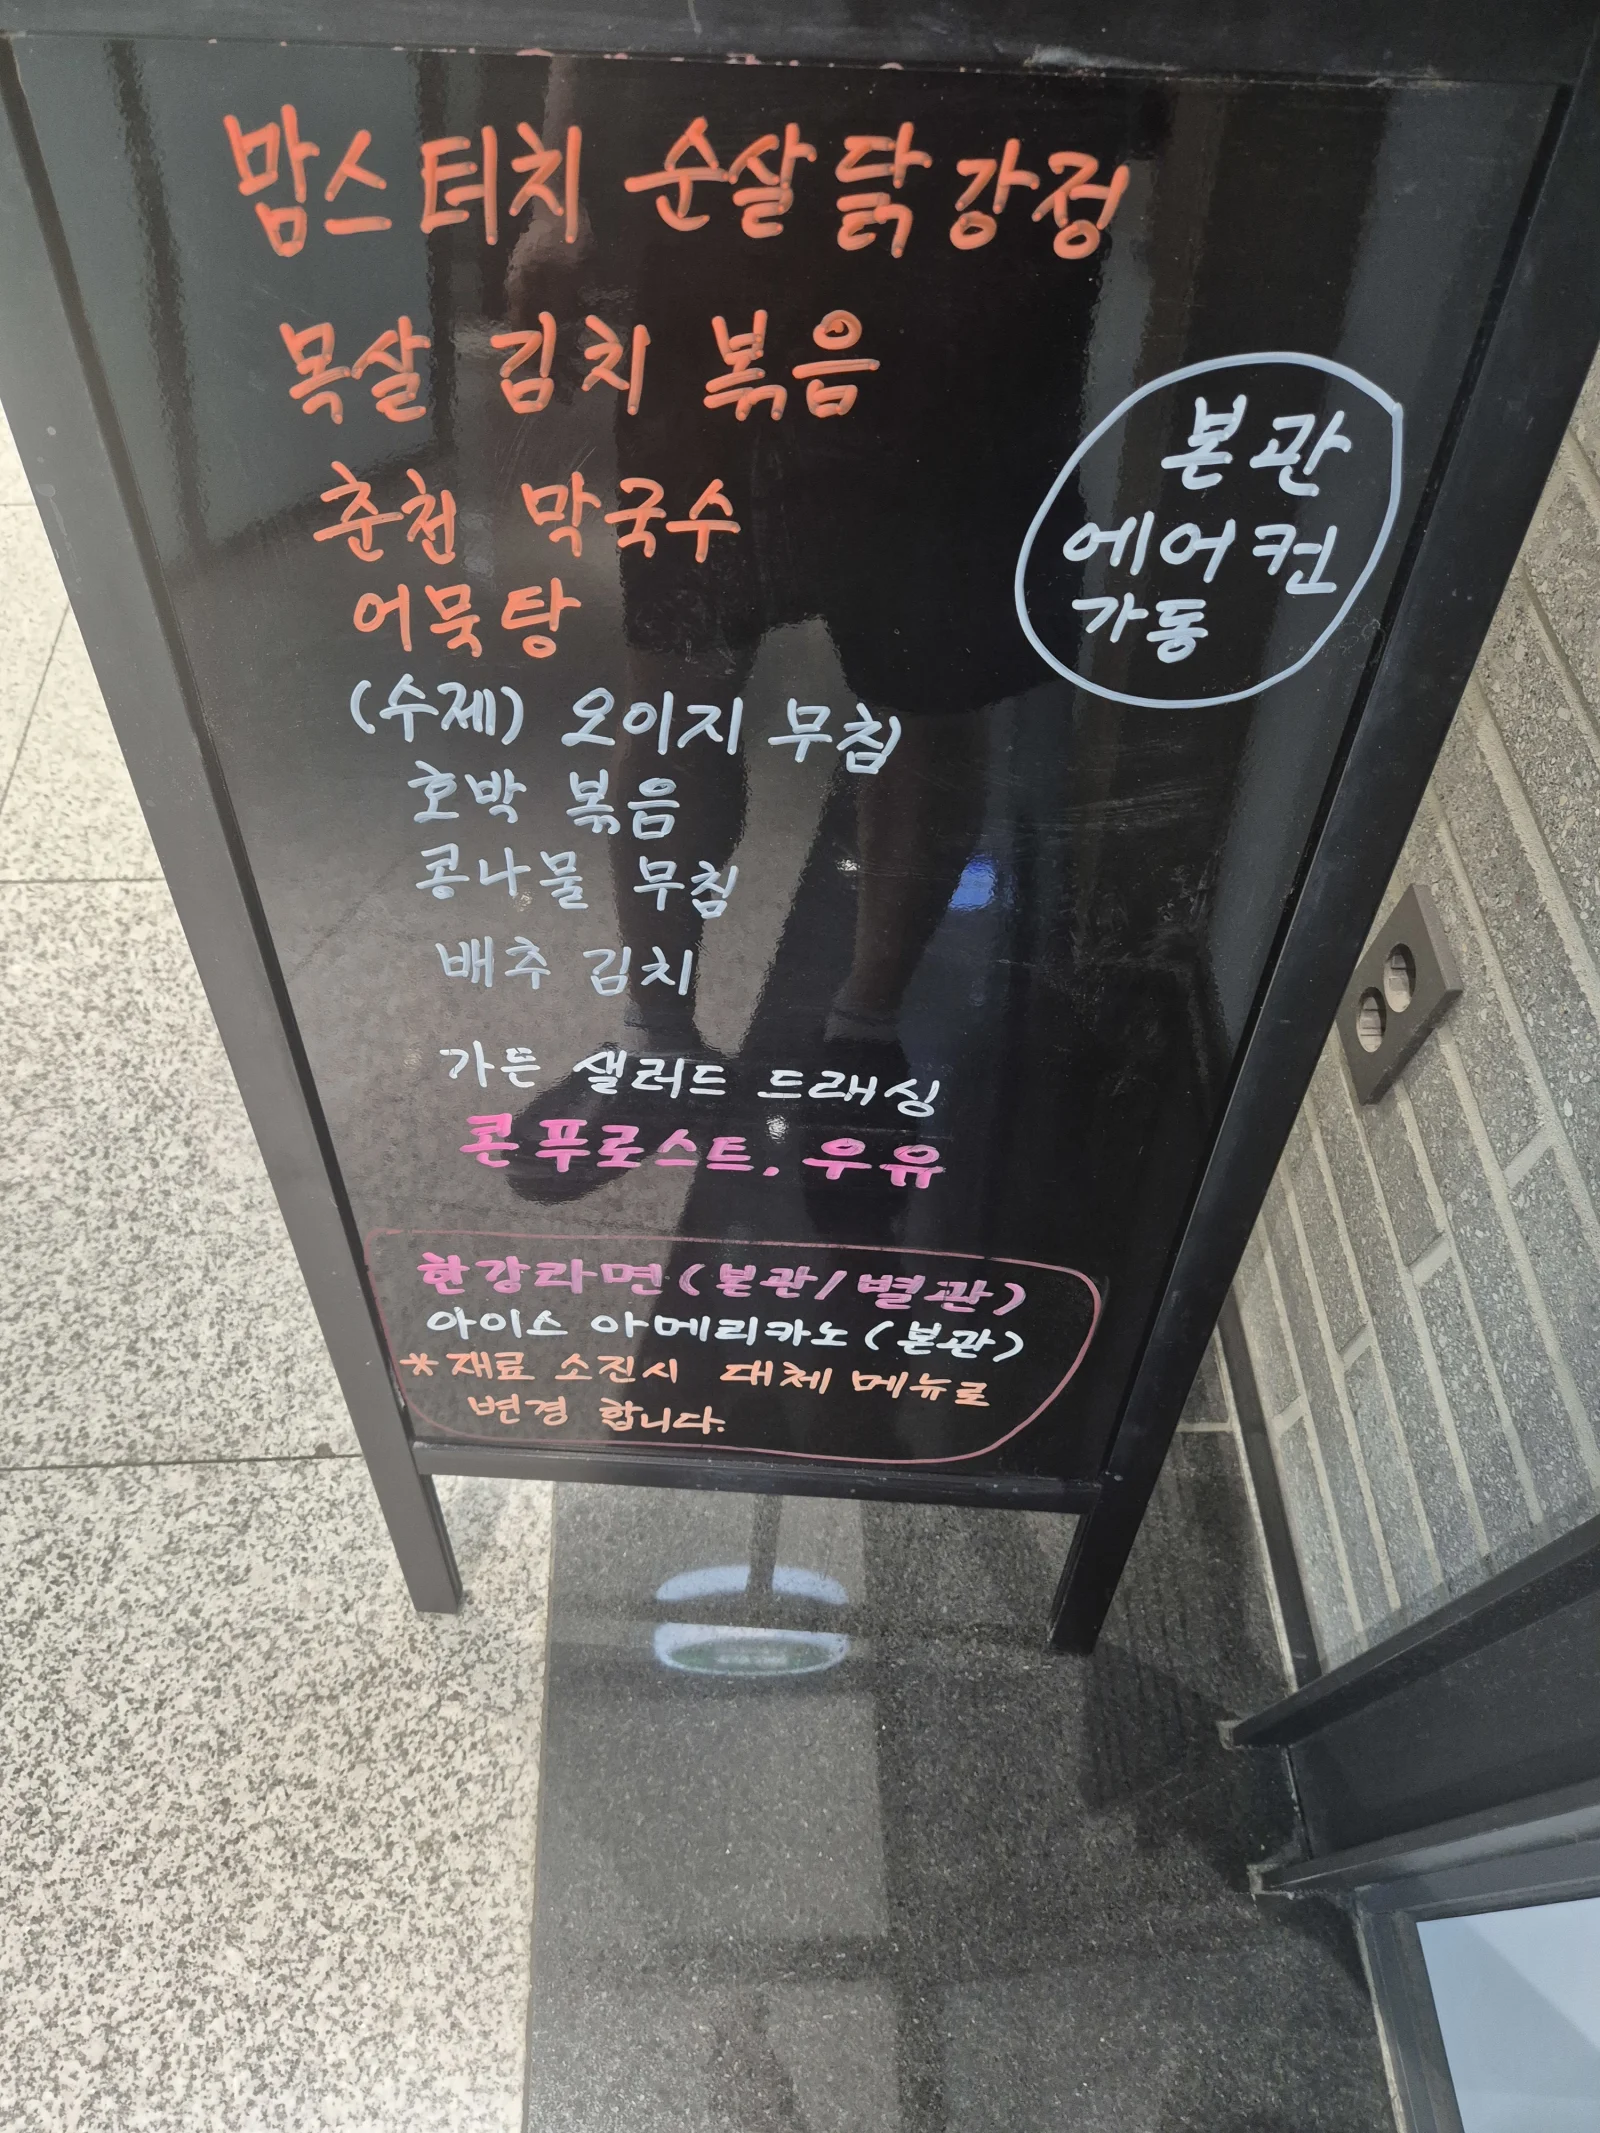 맘스터치 순살닭강정
목살 김치 볶음
춘천 막국수
어묵탕
(수제) 오이지 무침
호박 볶음
콩나물 무침
배추 김치
가든 샐러드 드래싱
콘푸로스트. 우유
본관
에어컨
가동
한강라면(본관/별관)
아이스 아메리카노(본관)
*재료 소진시 대체 메뉴로
변경 합니다.